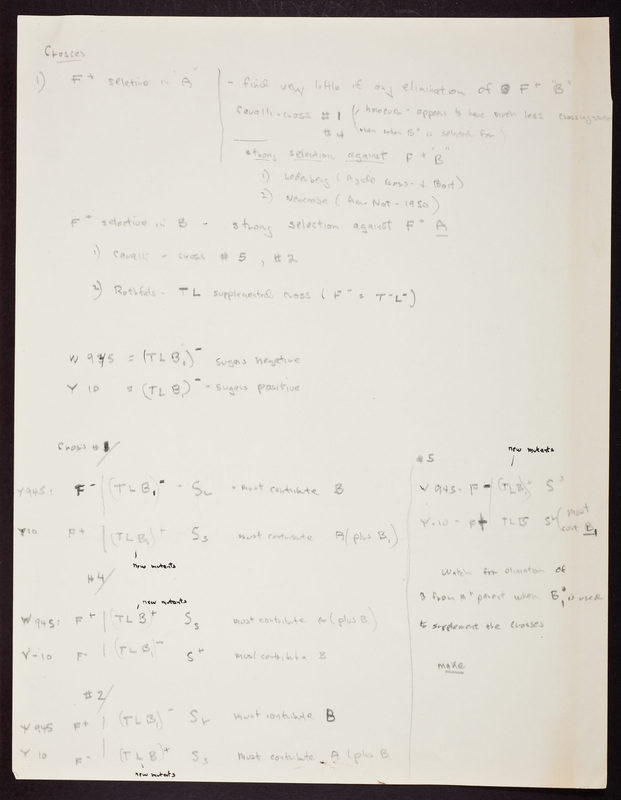 Crosses
1) F+ selective in "A" - find very little if any elimination of F+ "B"
Cavalli - cross #1 (however - appears to have much less crossing over
#4 when B is selected for)
strong selection against F+ "B"
1) Lederberg (Azide cross -
2) Newcombe (Am. Nat - 1950)
F- selective in B - strong selection against F+ A
1) Cavalli - cross #5, #2
2) Rothfels - TL supplemental cross (F- = T-L-)
W 945 = (TLB1)- sugars negative
Y 10 = (TLB1)- - sugars positive
Cross #1
Y945: F- (TLB1)- - Sr - must contribute B
Y10 F+ (TLB1)+ Ss must contribute A (plus B1)
new mutants
#4
new mutants
W945: F+ (TLB+ Ss must contribute A (plus B1)
Y-10 F- (TLB1)- S+ must contribute B
#2
Y945 F+ (TLB1)- Sr must contribute B
Y 10 F- (TLB)+ Ss must contribute A (plus B
new mutants
#5
new mutants
W 945- F- (TLB1)+ Ss
Y-10 - F+ TLB Sr (must
cont B1
Watch for elimination of
B from parent when B1 is used
to supplement the crosses
make